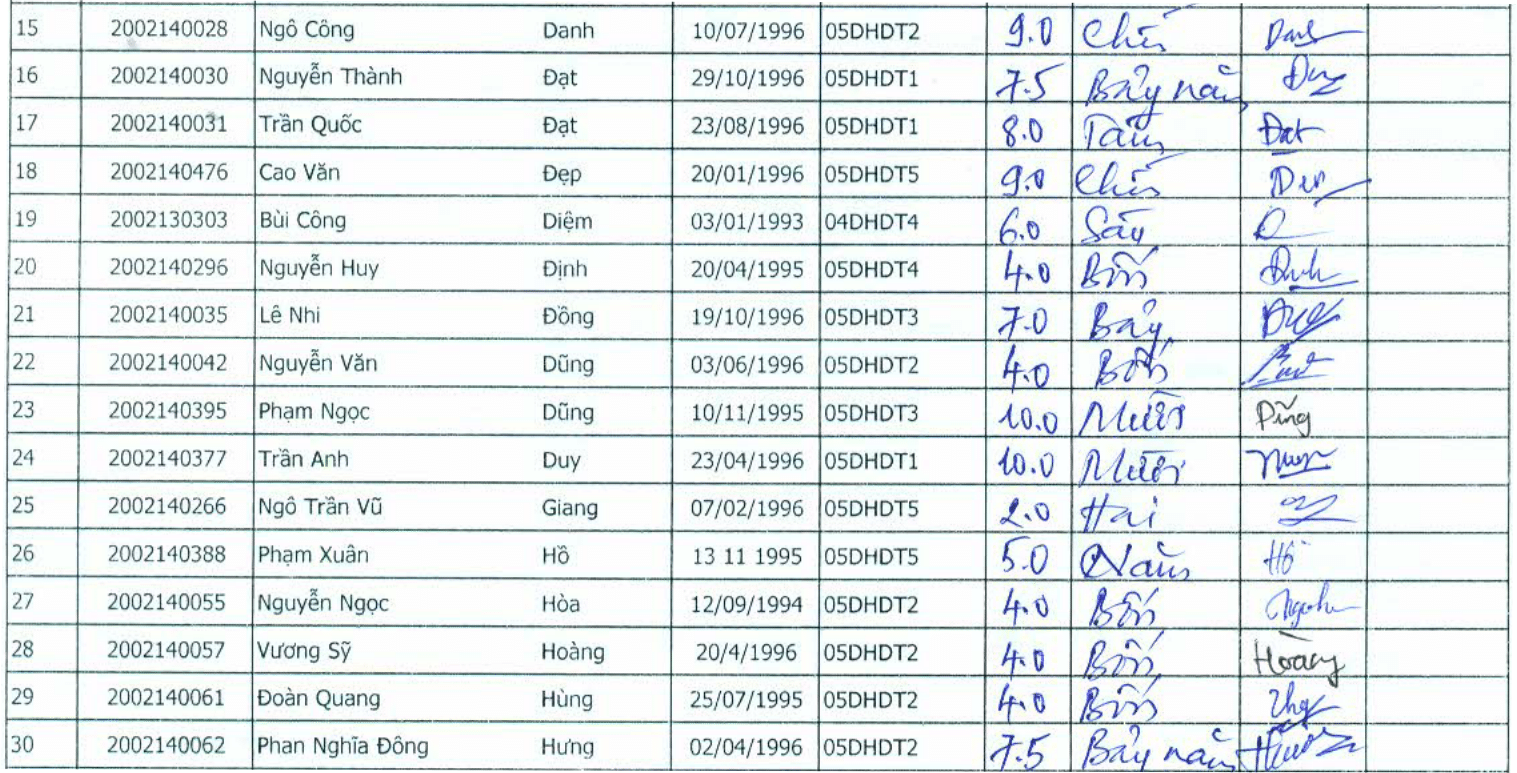 15 2002140028 Ngô Công Danh 10/07/1996 05DHDT2 9.0 Chín Danh
16 2002140030 Nguyễn Thành Đạt 29/10/1996 05DHDT1 7.5 Bảy năm
17 2002140031 Trần Quốc Đạt 23/08/1996 05DHDT1 8.0 Tám Đạt
18 2002140476 Cao Văn Đẹp 20/01/1996 05DHDT5 9.0 Chín
19 2002130303 Bùi Công Diệm 03/01/1993 04DHDT4 6.0 Sáu
20 2002140296 Nguyễn Huy Định 20/04/1995 05DHDT4 4.0 Bốn
21 2002140035 Lê Nhi Đồng 19/10/1996 05DHDT3 7.0 Bảy
22 2002140042 Nguyễn Văn Dũng 03/06/1996 05DHDT2 4.0 Bốn
23 2002140395 Phạm Ngọc Dũng 10/11/1995 05DHDT3 10.0 Mười Dũng
24 2002140377 Trần Anh Duy 23/04/1996 05DHDT1 10.0 Mười
25 2002140266 Ngô Trần Vũ Giang 07/02/1996 05DHDT5 2.0 Hai
26 2002140388 Phạm Xuân Hồ 13 11 1995 05DHDT5 5.0 Năm Hồ
27 2002140055 Nguyễn Ngọc Hòa 12/09/1994 05DHDT2 4.0 Bốn
28 2002140057 Vương Sỹ Hoàng 20/4/1996 05DHDT2 4.0 Bốn Hoàng
29 2002140061 Đoàn Quang Hùng 25/07/1995 05DHDT2 4.0 Bốn
30 2002140062 Phan Nghĩa Đông Hưng 02/04/1996 05DHDT2 7.5 Bảy năm